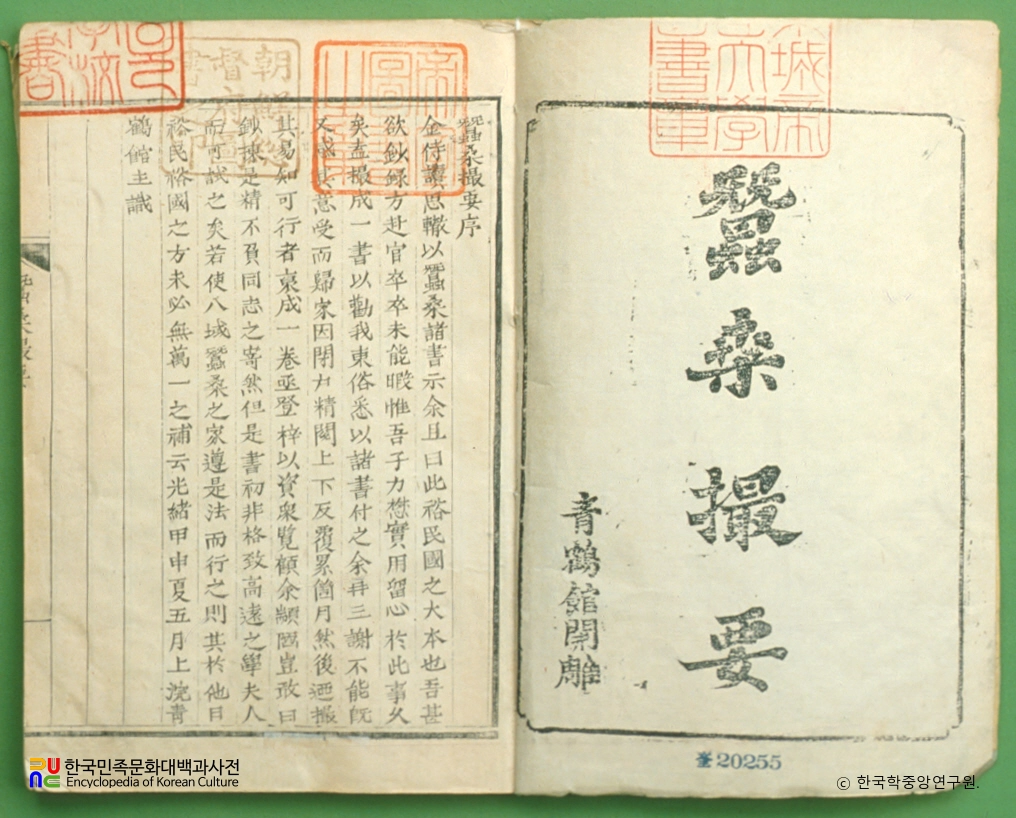 城帝
大學
書章
蠶
桑
撮
要
青鶴館開雕
蠶桑撮要序
金侍讀思轍以蠶桑諸書示余且曰此裕民國之大本也吾甚
欲鈔録方赴官卒卒未能暇惟吾子力懋實用留心於此事久
矣盍撮成一書以勸我東俗悉以諸書付之余再三謝不能旣
又感其意受而歸家因閉戶精閱上下反覆累箇月然後迺撮
其易知可行者裒成一卷亟登梓以資衆覽顧余顓固豈敢曰
鈔揀是精不負同志之寄然但是書初非格致高遠之學夫人
而可試之矣若使八域蠶桑之家遵是法而行之則其於他日
裕民裕國之方未必無萬一之補云光緖甲申夏五月上浣靑
鶴館主識
奎20255
한국민족문화대백과사전
Encyclopedia of Korean Culture
© 한국학중앙연구원.